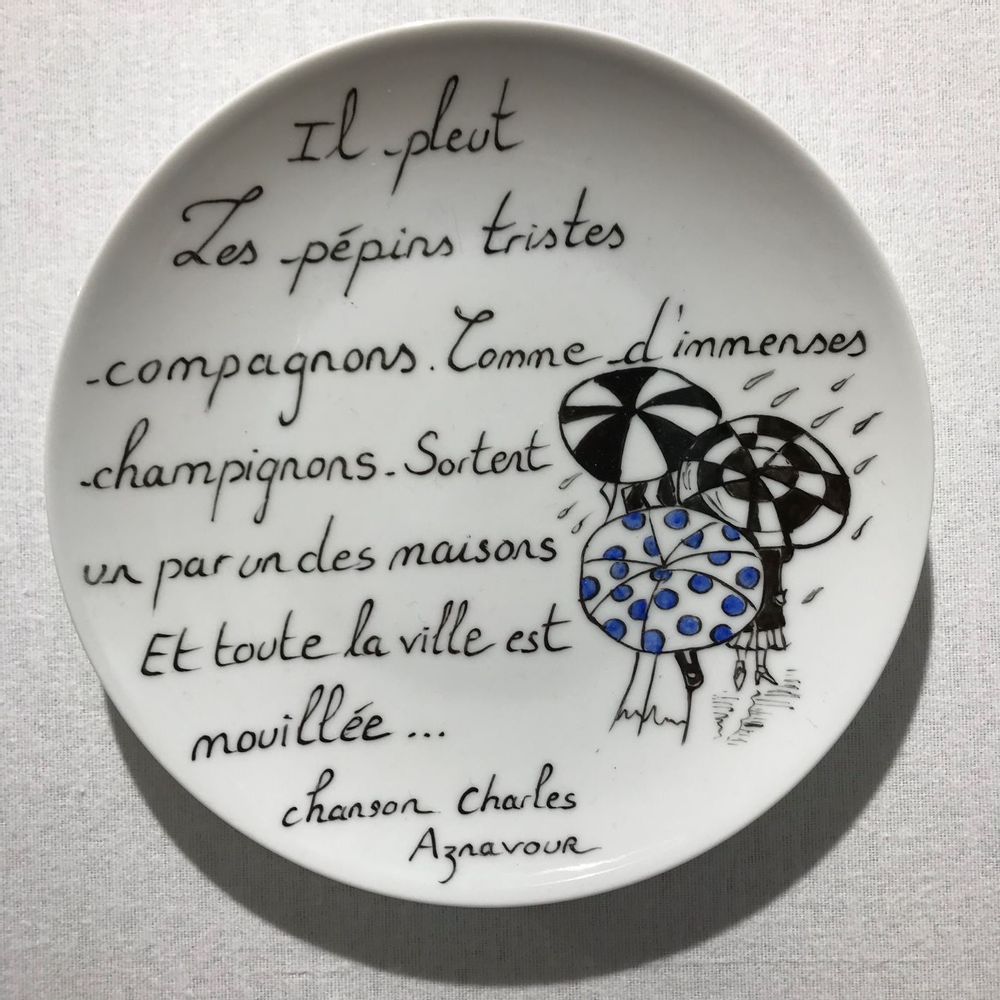 Il pleut
Les pépins tristes
compagnons. Comme d'immenses
champignons. Sortent
un par un des maisons
Et toute la ville est
mouillée...
chanson Charles
Aznavour